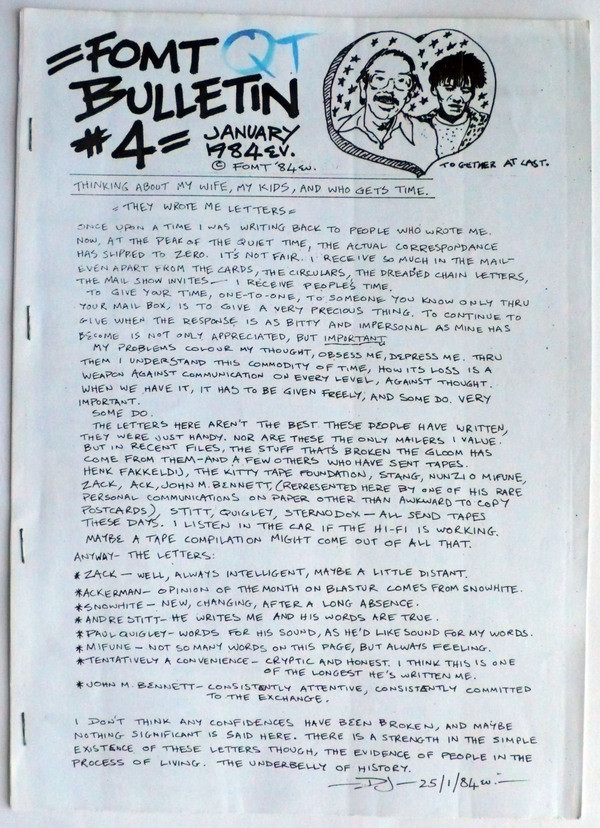 =FOMT QT
BULLETIN
#4=
JANUARY
1984 EV.
© FOMT '84 EV.
TOGETHER AT LAST.
THINKING ABOUT MY WIFE, MY KIDS, AND WHO GETS TIME.
=THEY WROTE ME LETTERS=
ONCE UPON A TIME I WAS WRITING BACK TO PEOPLE WHO WROTE ME.
NOW, AT THE PEAK OF THE QUIET TIME, THE ACTUAL CORRESPONDANCE
HAS SLIPPED TO ZERO. IT'S NOT FAIR. I RECEIVE SO MUCH IN THE MAIL-
EVEN APART FROM THE CARDS, THE CIRCULARS, THE DREADED CHAIN LETTERS,
THE MAIL SHOW INVITES- I RECEIVE PEOPLE'S TIME.
TO GIVE YOUR TIME, ONE-TO-ONE, TO SOMEONE YOU KNOW ONLY THRU
YOUR MAIL BOX, IS TO GIVE A VERY PRECIOUS THING. TO CONTINUE TO
GIVE WHEN THE RESPONSE IS AS BITTY AND IMPERSONAL AS MINE HAS
BECOME IS NOT ONLY APPRECIATED, BUT IMPORTANT.
MY PROBLEMS COLOUR MY THOUGHT, OBSESS ME, DEPRESS ME. THRU
THEM I UNDERSTAND THIS COMMODITY OF TIME, HOW ITS LOSS IS A
WEAPON AGAINST COMMUNICATION ON EVERY LEVEL, AGAINST THOUGHT.
WHEN WE HAVE IT, IT HAS TO BE GIVEN FREELY, AND SOME DO. VERY
IMPORTANT.
SOME DO.
THE LETTERS HERE AREN'T THE BEST THESE PEOPLE HAVE WRITTEN,
THEY WERE JUST HANDY. NOR ARE THESE THE ONLY MAILERS I VALUE.
BUT IN RECENT FILES, THE STUFF THAT'S BROKEN THE GLOOM HAS
COME FROM THEM-AND A FEW OTHERS WHO HAVE SENT TAPES.
HENK FAKKELDIJ, THE KITTY TAPE FOUNDATION, STANG, NUNZIO MIFUNE,
ZACK, ACK, JOHN M. BENNETT, (REPRESENTED HERE BY ONE OF HIS RARE
PERSONAL COMMUNICATIONS ON PAPER OTHER THAN AWKWARD TO COPY
POSTCARDS), STITT, QUIGLEY, STERNODOX - ALL SEND TAPES
THESE DAYS. I LISTEN IN THE CAR IF THE HI-FI IS WORKING.
MAYBE A TAPE COMPILATION MIGHT COME OUT OF ALL THAT.
ANYWAY- THE LETTERS:
*ZACK - WELL, ALWAYS INTELLIGENT, MAYBE A LITTLE DISTANT.
*ACKERMAN- OPINION OF THE MONTH ON BLASTUR COMES FROM SNOWHITE.
*SNOWHITE - NEW, CHANGING, AFTER A LONG ABSENCE.
*ANDRE STITT- HE WRITES ME AND HIS WORDS ARE TRUE.
*PAUL QUIGLEY- WORDS FOR HIS SOUND, AS HE'D LIKE SOUND FOR MY WORDS.
*MIFUNE - NOT SO MANY WORDS ON THIS PAGE, BUT ALWAYS FEELING.
*TENTATIVELY A CONVENIENCE- CRYPTIC AND HONEST. I THINK THIS IS ONE
OF THE LONGEST HE'S WRITTEN ME.
*JOHN M. BENNETT- CONSISTANTLY ATTENTIVE, CONSISTANTLY COMMITTED
TO THE EXCHANGE.
I DON'T THINK ANY CONFIDENCES HAVE BEEN BROKEN, AND MAYBE
NOTHING SIGNIFICANT IS SAID HERE. THERE IS A STRENGTH IN THE SIMPLE
EXISTENCE OF THESE LETTERS THOUGH, THE EVIDENCE OF PEOPLE IN THE
PROCESS OF LIVING. THE UNDERBELLY OF HISTORY.
-DJ- 25/1/84 EV.-